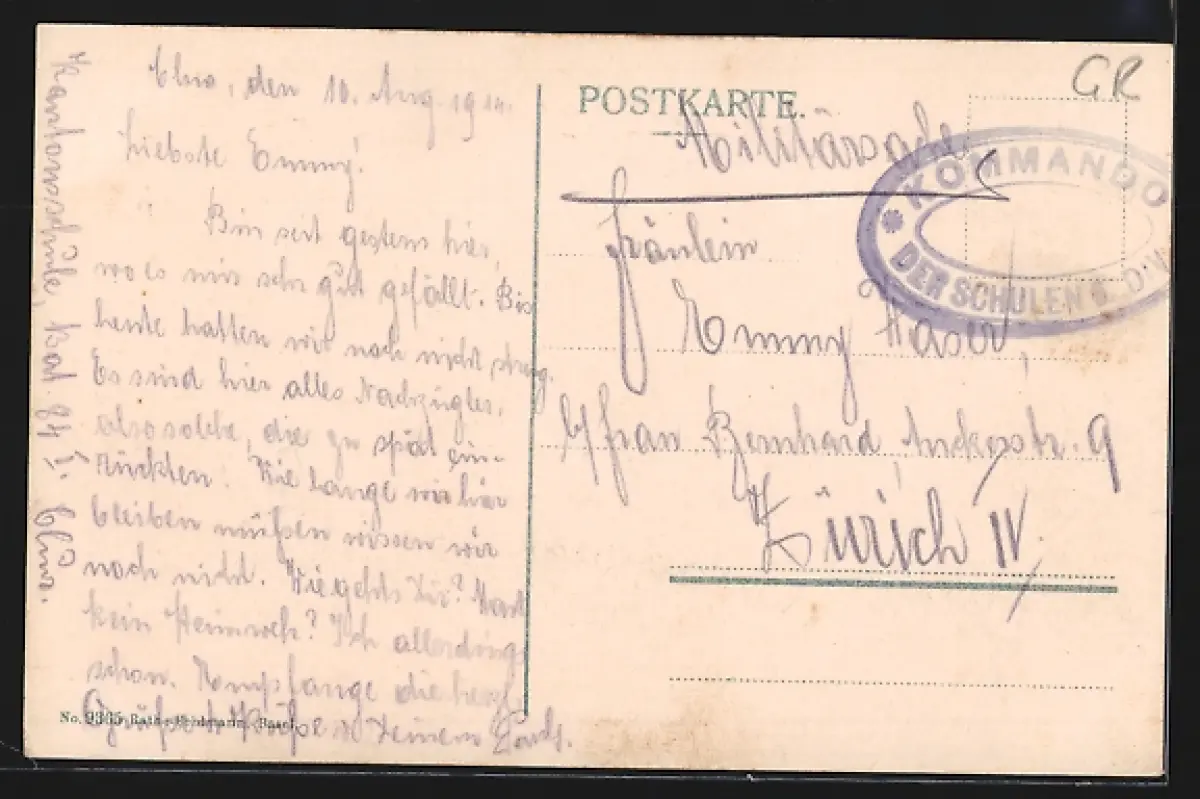 Chur, den 10. Aug. 1914.
Liebste Emmy!
Bin seit gestern hier,
wo es mir sehr gut gefällt. Bis
heute hatten wir noch nicht streng.
Es sind hier alles Nachzügler,
also solche, die zu spät ein-
rückten. Wie lange wir hier
bleiben müßen wissen wir
noch nicht. Wie gehts Dir? Hast
kein Heimweh? Ich allerdings
schon. Empfange die herzl.
Grüße & Küße v. Deinem
Kantonsschule, Bat. 84 I. Chur.
No. 9365 Rathe-Fehlmann, Basel
POSTKARTE.
Militärsache
GR
KOMMANDO
DER SCHULEN
Fräulein
Emmy Haser,
b/ Frau Bernhard Ankerstr. 9
Zürich IV